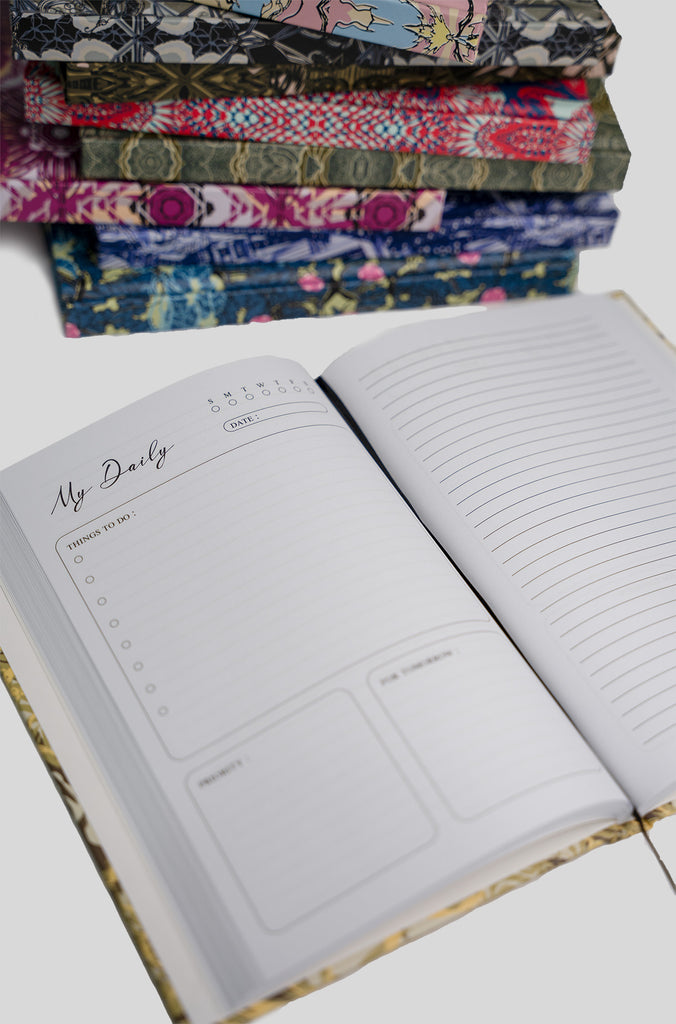 S M T W T F S
DATE :
My Daily
THINGS TO DO :
FOR TOMORROW :
PRIORITY :